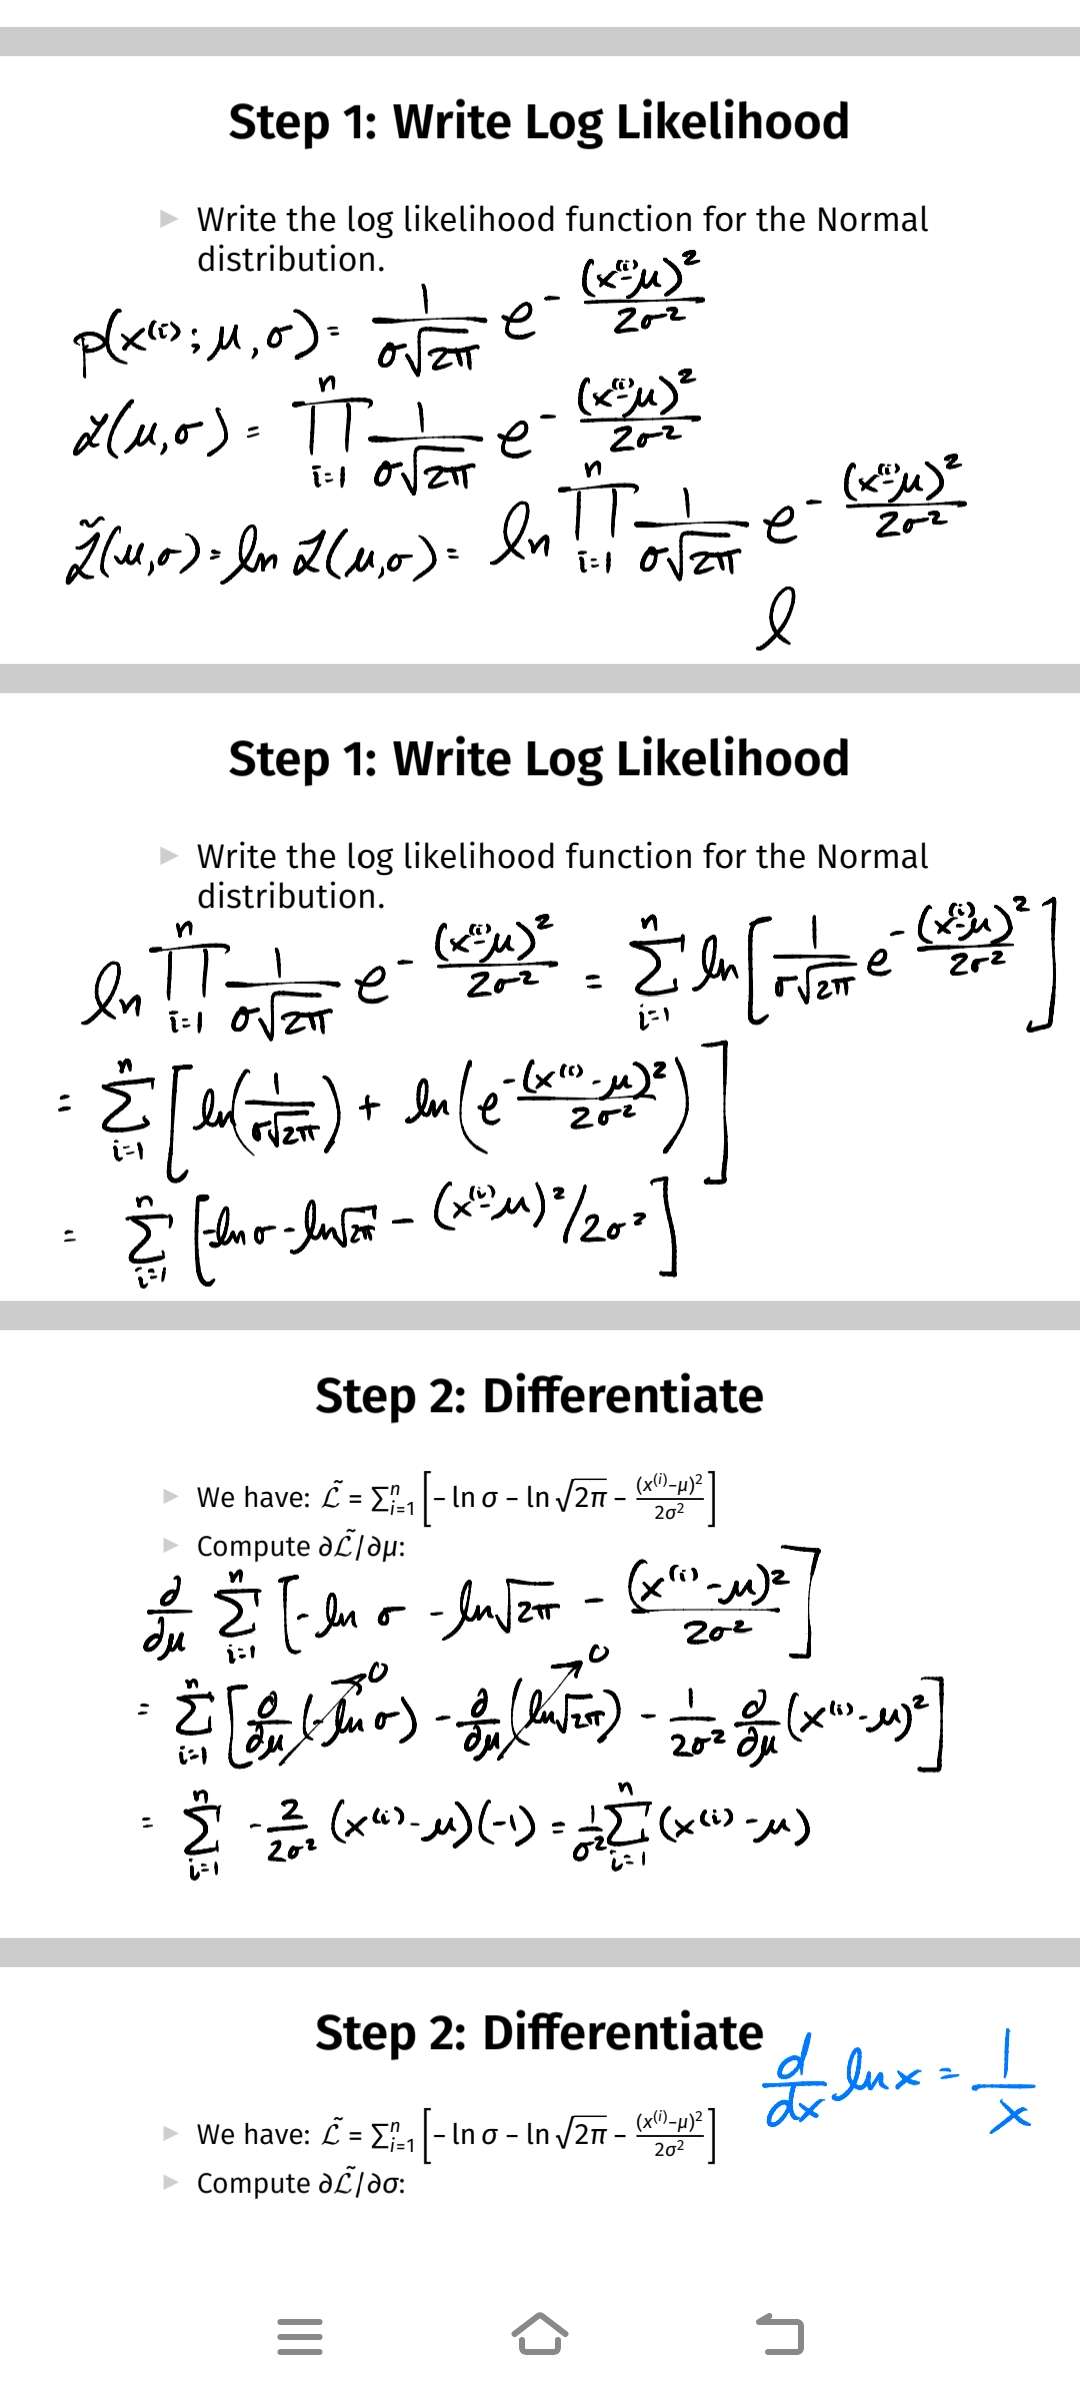 Step 1: Write Log Likelihood
▶ Write the log likelihood function for the Normal
distribution.
p(x⁽ⁱ⁾; μ, σ) = 1/(σ√2π) e^(-(x⁽ⁱ⁾-μ)²/2σ²)
ℒ(μ,σ) = ∏_{i=1}^{n} 1/(σ√2π) e^(-(x⁽ⁱ⁾-μ)²/2σ²)
ℒ̃(μ,σ) = ln ℒ(μ,σ) = ln ∏_{i=1}^{n} 1/(σ√2π) e^(-(x⁽ⁱ⁾-μ)²/2σ²)
l
Step 1: Write Log Likelihood
▶ Write the log likelihood function for the Normal
distribution.
ln ∏_{i=1}^{n} 1/(σ√2π) e^(-(x⁽ⁱ⁾-μ)²/2σ²) = Σ_{i=1}^{n} ln[1/(σ√2π) e^(-(x⁽ⁱ⁾-μ)²/2σ²)]
= Σ_{i=1}^{n} [ln(1/(σ√2π)) + ln(e^(-(x⁽ⁱ⁾-μ)²/2σ²))]
= Σ_{i=1}^{n} [-ln σ - ln√2π - (x⁽ⁱ⁾-μ)²/2σ²]
Step 2: Differentiate
▶ We have: ℒ̃ = Σ_{i=1}^{n} [- ln σ - ln √2π - (x⁽ⁱ⁾-μ)²/2σ²]
▶ Compute ∂ℒ̃/∂μ:
∂/∂μ Σ_{i=1}^{n} [-ln σ - ln√2π - (x⁽ⁱ⁾-μ)²/2σ²]
= Σ_{i=1}^{n} [∂/∂μ (-ln σ)→0 - ∂/∂μ (ln√2π)→0 - 1/2σ² ∂/∂μ (x⁽ⁱ⁾-μ)²]
= Σ_{i=1}^{n} -2/2σ² (x⁽ⁱ⁾-μ)(-1) = 1/σ² Σ_{i=1}^{n} (x⁽ⁱ⁾-μ)
Step 2: Differentiate
d/dx ln x = 1/x
▶ We have: ℒ̃ = Σ_{i=1}^{n} [- ln σ - ln √2π - (x⁽ⁱ⁾-μ)²/2σ²]
▶ Compute ∂ℒ̃/∂σ: